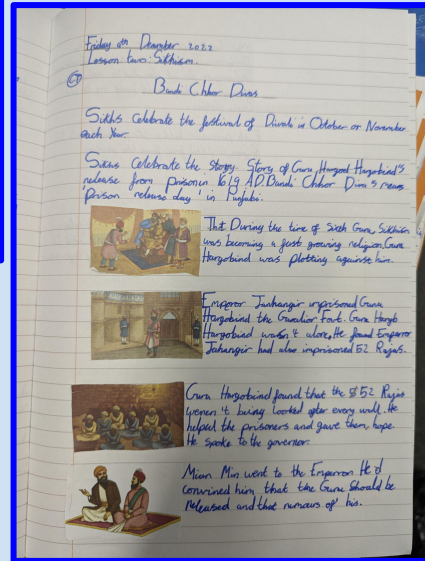 Friday 9th December 2022
Lesson two: Sikhism.
Bandi Chhor Divas
Sikhs celebrate the festival of Diwali in October or November
each Year.
Sikhs celebrate the story Story of Guru Hargod Hargobind's
release from prison in 1619 AD. Bandi Chhor Divas means
'Prison release day' in Punjabi.
That During the time of Sixth Guru, Sikhism
was becoming a fast growing religion, Guru
Hargobind was plotting against him.
Emperor Janhangir imprisoned Guru
Hargobind the Gwalior Fort. Guru Hargob
Hargobind wasn't alone, He found Emperor
Jahangir had also imprisoned 52 Rajas.
Guru Hargobind found that the 52 Rajas
weren't being looked after every well. He
helped the prisoners and gave them hope.
He spoke to the governor.
Mian Min went to the Emperor. He'd
convined him that the Guru should be
released and that rumours of his.